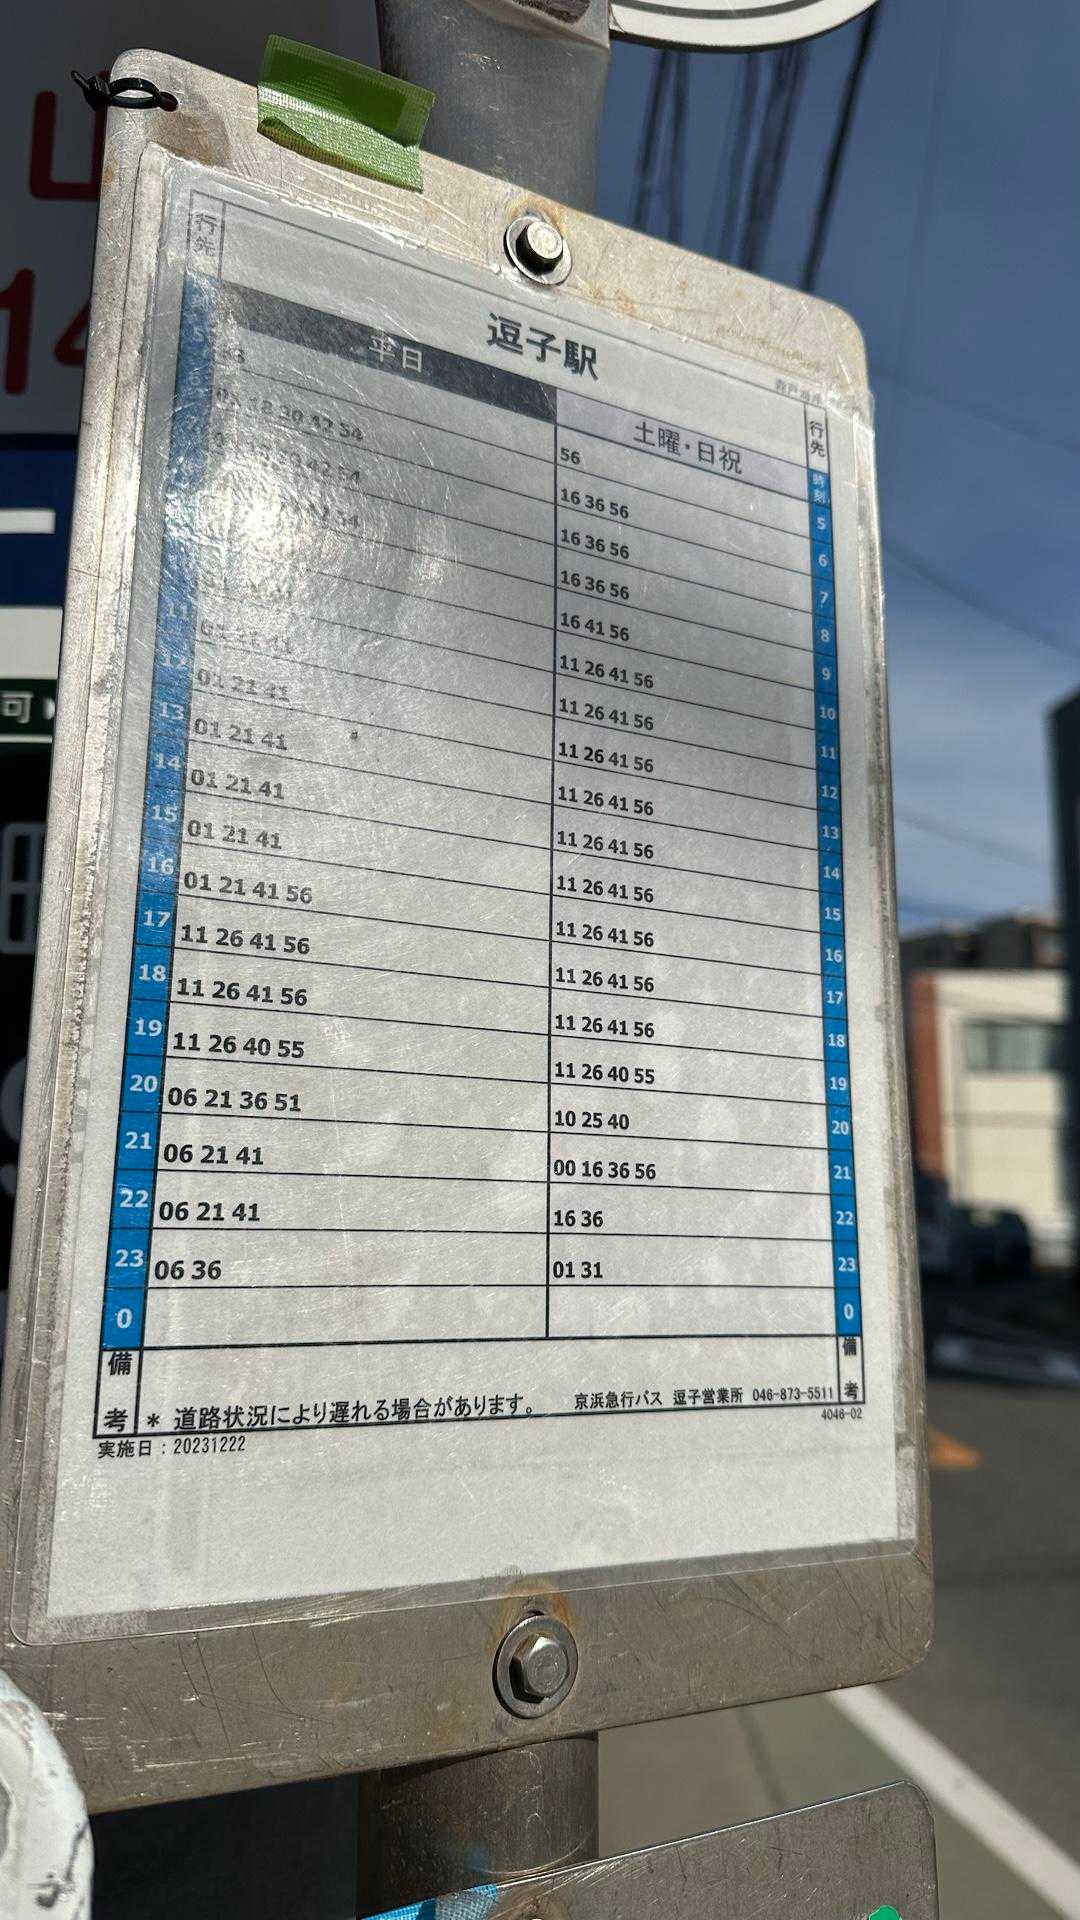 行先 逗子駅 行先
平日 土曜・日祝 時刻
5 56 5
18 30 42 54 16 36 56 6
7 42 54 16 36 56 7
16 36 56 8
16 41 56 9
11 26 41 56 10
11 21 41 11 26 41 56 11
12 01 21 41 11 26 41 56 12
13 01 21 41 11 26 41 56 13
14 01 21 41 11 26 41 56 14
15 01 21 41 11 26 41 56 15
16 01 21 41 56 11 26 41 56 16
17 11 26 41 56 11 26 41 56 17
18 11 26 41 56 11 26 41 56 18
19 11 26 40 55 11 26 40 55 19
20 06 21 36 51 10 25 40 20
21 06 21 41 00 16 36 56 21
22 06 21 41 16 36 22
23 06 36 01 31 23
0 0
備考 * 道路状況により遅れる場合があります。 京浜急行バス 逗子営業所 046-873-5511 備考
実施日：20231222 4046-02
可